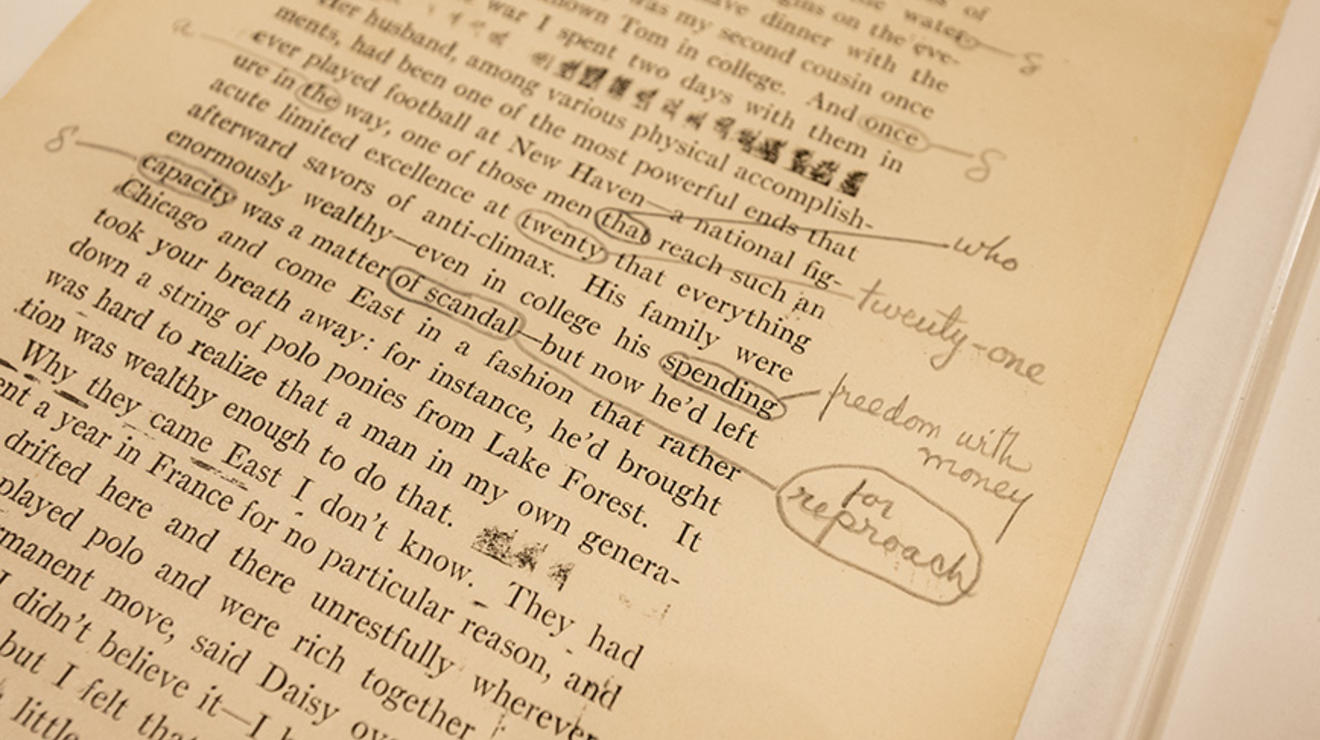 of
the water
on the eve-
have dinner with the
was my second cousin once
known Tom in college. And once
war I spent two days with them in
Her husband, among various physical accomplish-
ments, had been one of the most powerful ends that
ever played football at New Haven—a national fig-
ure in the way, one of those men that reach such an
who
acute limited excellence at twenty that everything
twenty-one
afterward savors of anti-climax. His family were
enormously wealthy—even in college his spending
freedom with
money
capacity was a matter of scandal—but now he'd left
for
reproach
Chicago and come East in a fashion that rather
took your breath away: for instance, he'd brought
down a string of polo ponies from Lake Forest. It
was hard to realize that a man in my own genera-
tion was wealthy enough to do that.
Why they came East I don't know. They had
ent a year in France for no particular reason, and
drifted here and there unrestfully wherever
played polo and were rich together
rmanent move, said Daisy ove
I didn't believe it—I h
but I felt that
little